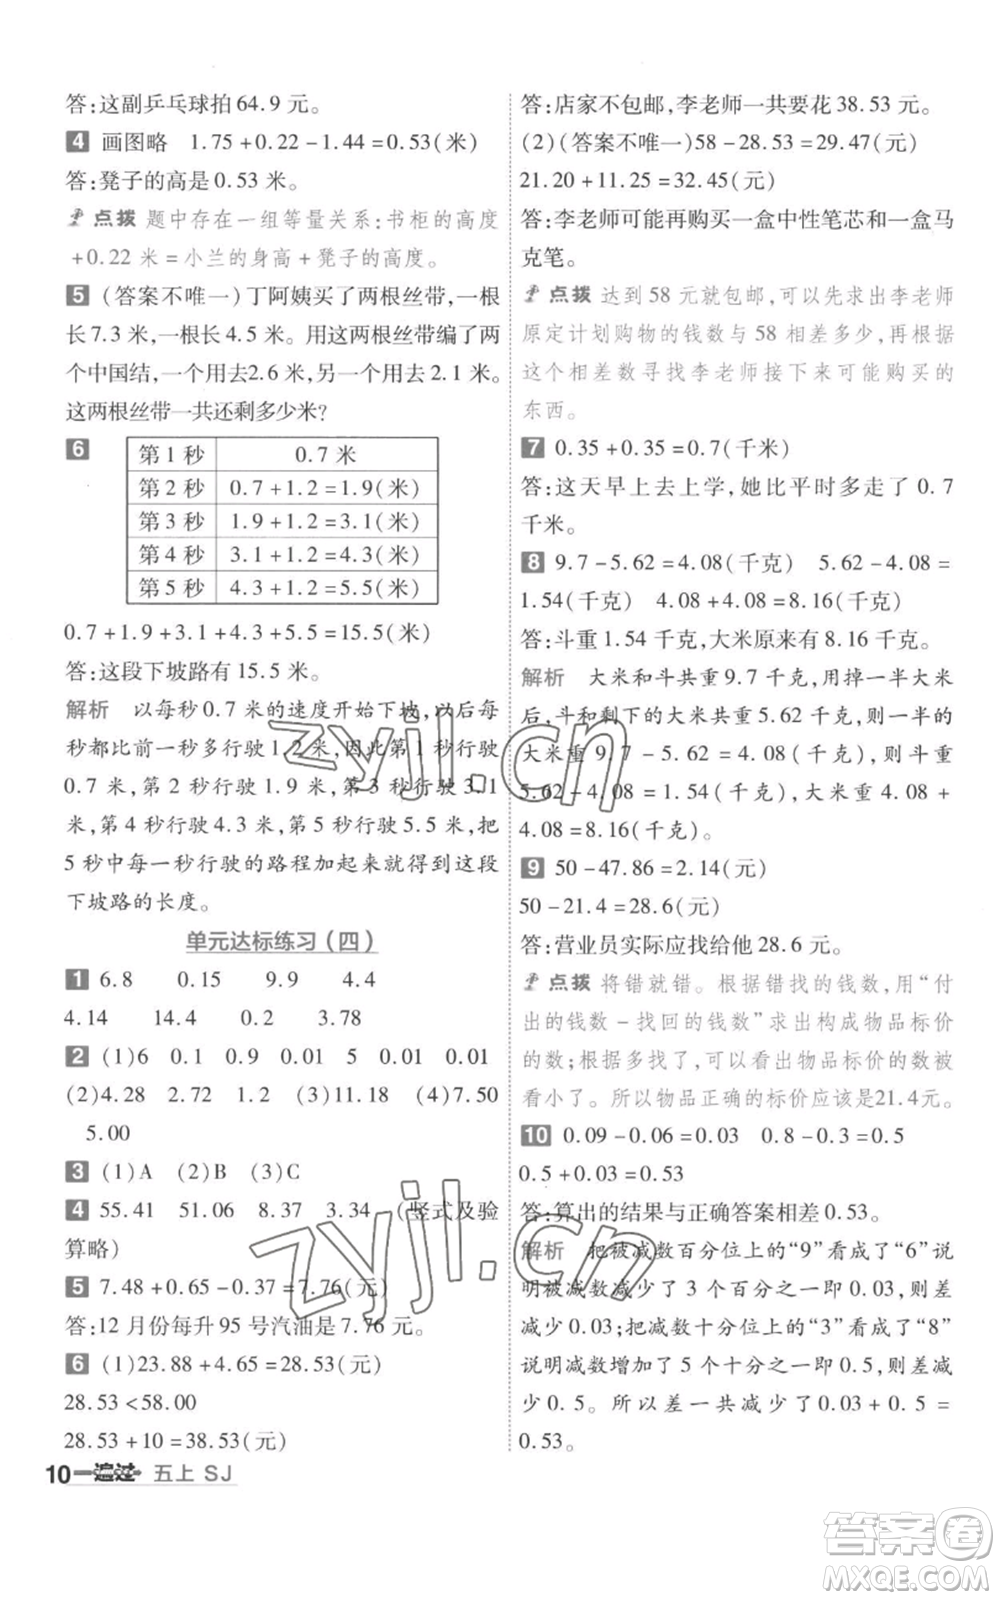 答:这副乒乓球拍 64.9 元。
4 画图略 1.75+0.22-1.44=0.53(米)
答:凳子的高是 0.53 米。
点拨 题中存在一组等量关系:书柜的高度
+0.22 米=小兰的身高+凳子的高度。
5 (答案不唯一)丁阿姨买了两根丝带,一根
长 7.3 米,一根长 4.5 米。用这两根丝带编了两
个中国结,一个用去2.6 米,一个用去 2.1 米。
这两根丝带一共还剩多少米?
6
第 1 秒 0.7 米
第 2 秒 0.7+1.2=1.9(米)
第 3 秒 1.9+1.2=3.1(米)
第 4 秒 3.1+1.2=4.3(米)
第 5 秒 4.3+1.2=5.5(米)
0.7+1.9+3.1+4.3+5.5=15.5(米)
答:这段下坡路有 15.5 米。
解析 以每秒 0.7 米的速度开始下坡,以后每
秒都比前一秒多行驶 1.2 米,因此第 1 秒行驶
0.7 米,第 2 秒行驶 1.9 米,第 3 秒行驶 3.1
米,第 4 秒行驶 4.3 米,第 5 秒行驶 5.5 米,把
5 秒中每一秒行驶的路程加起来就等于这段
下坡路的长度。
单元达标练习(四)
1 6.8 0.15 9.9 4.4
4.14 14.4 0.2 3.78
2 (1)6 0.1 0.9 0.01 5 0.01 0.01
(2)4.28 2.72 (3)11.18 (4)7.50
5.00
3 (1)A (2)B (3)C
4 55.41 51.06 8.37 3.34 (竖式及验
算略)
5 7.48+0.65-0.37=7.76(元)
答:12 月份每升 95 号汽油是 7.76 元。
6 (1)23.88+4.65=28.53(元)
28.53<58.00
28.53+10=38.53(元)
10 一遍过 五上 SJ
答:店家不包邮,李老师一共要花 38.53 元。
(2)(答案不唯一)58-28.53=29.47(元)
21.20+11.25=32.45(元)
答:李老师可能再购买一盒中性笔芯和一盒马
克笔。
点拨 达到 58 元就包邮,可以先求出李老师
原定计划购物的钱数与 58 相差多少,再根据
这个相差数寻找李老师接下来可能购买的
东西。
7 0.35+0.35=0.7(千米)
答:这天早上去上学,她比平时多走了 0.7
千米。
8 9.7-5.62=4.08(千克) 5.62-4.08=
1.54(千克) 4.08+4.08=8.16(千克)
答:斗重 1.54 千克,大米原来有 8.16 千克。
解析 大米和斗共重 9.7 千克,用掉一半大米
后,斗和剩下的大米共重 5.62 千克,则一半的
大米重 9.7-5.62=4.08(千克),则斗重
5.62-4.08=1.54(千克),大米重 4.08+
4.08=8.16(千克)。
9 50-47.86=2.14(元)
50-21.4=28.6(元)
答:营业员实际应找给他 28.6 元。
点拨 将错就错。根据错找的钱数,用“付
出的钱数-找回的钱数”求出构成物品标价
的数;根据多找了,可以看出物品标价的数被
看小了。所以物品正确的标价应该是21.4元。
10 0.09-0.06=0.03 0.8-0.3=0.5
0.5+0.03=0.53
答:算出的结果与正确答案相差 0.53。
解析 把被减数百分位上的“9”看成了“6”说
明被减数减少了 3 个百分之一即 0.03,则差
减少 0.03;把减数十分位上的“3”看成了“8”
说明减数增加了 5 个十分之一即 0.5,则差减
少 0.5。所以差一共减少了 0.03+0.5=
0.53。
zyjl.cn
zyjl.cn
答案圈
MXQE.COM